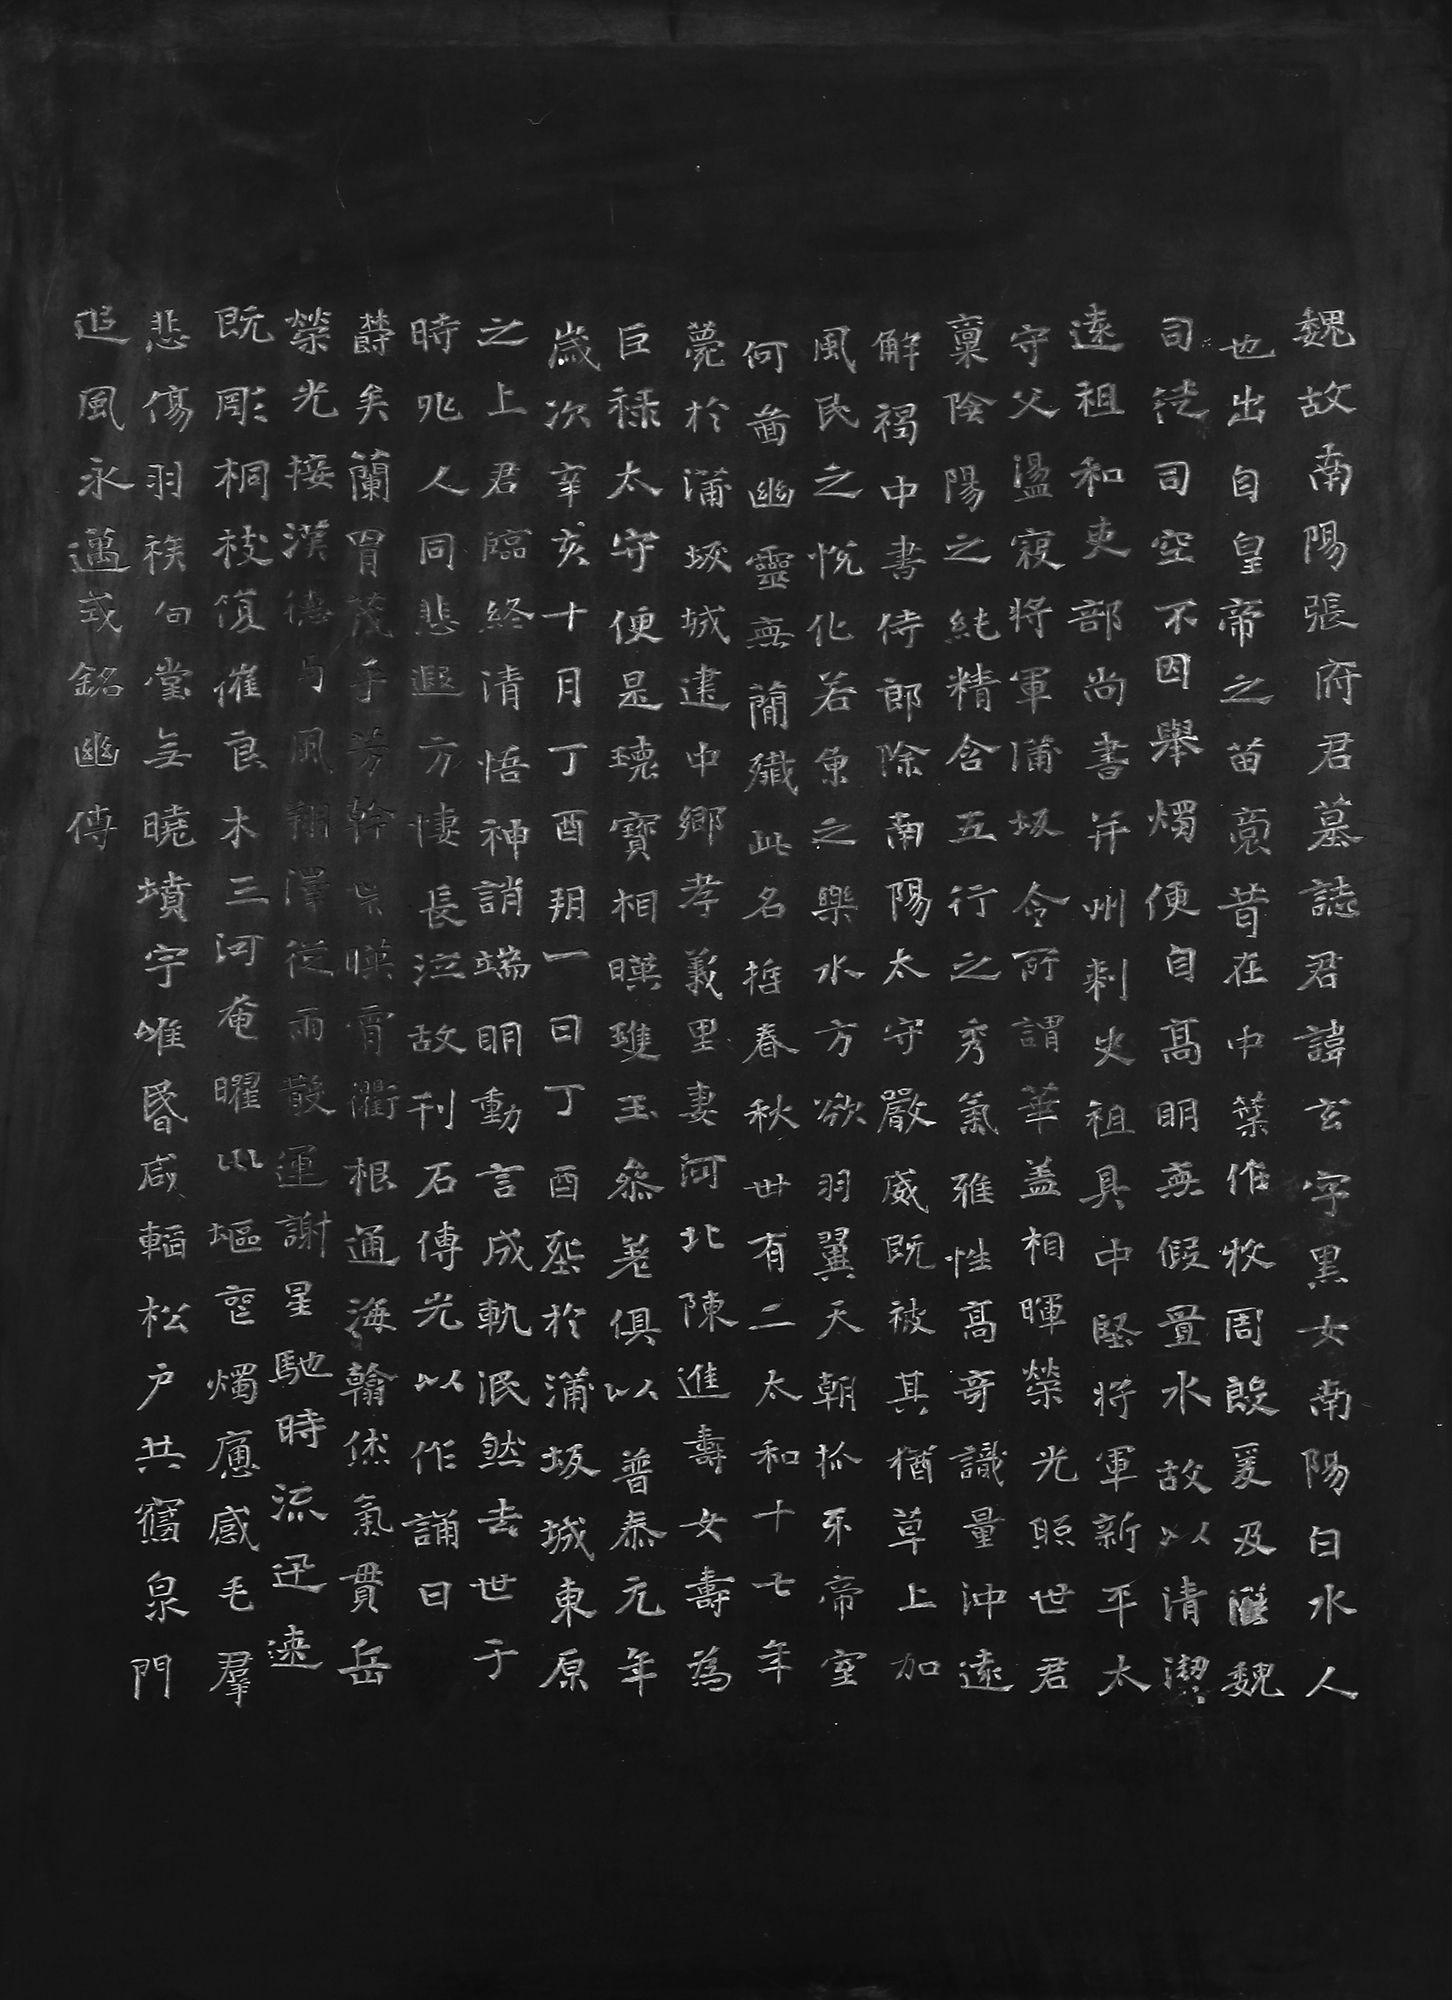 魏故南陽張府君墓誌君諱玄字黑女南陽白水人
也出自皇帝之苗裔昔在中葉作牧周殷爰及漢魏
司徒司空不因舉燭便自高明無假置水故以清潔
遠祖和吏部尚書并州刺史祖具中堅將軍新平太
守父盪寇將軍蒲坂令所謂華蓋相暉榮光照世君
稟陰陽之純精含五行之秀氣雅性高奇識量沖遠
解褐中書侍郎除南陽太守嚴威既被其猶草上加
風民之悅化若魚之樂水方欲羽翼天朝抓牙帝室
何啚幽靈無簡殲此名哲春秋卅有二太和十七年
薨於蒲坂城建中鄉孝義里妻河北陳進壽女壽為
巨祿太守便是瓌寶相暎瓊玉參差俱以普泰元年
歲次辛亥十月丁酉朔一日丁酉塟於蒲坂城東原
之上君臨終清悟神誚端明動言成軌泯然去世于
時兆人同悲遐方悽長泣故刊石傳光以作誦曰
欝矣蘭胄茂乎芳幹葉暎霄衢根通海翰休氣貫岳
榮光接漢德与風翔澤從雨散運謝星馳時流迅速
既彫桐枝復摧良木三河奄曜川塸寑燭痛感毛羣
悲傷羽族何堂無曉墳宇唯昏咸韜松戶共寢泉門
追風永邁式銘幽傳